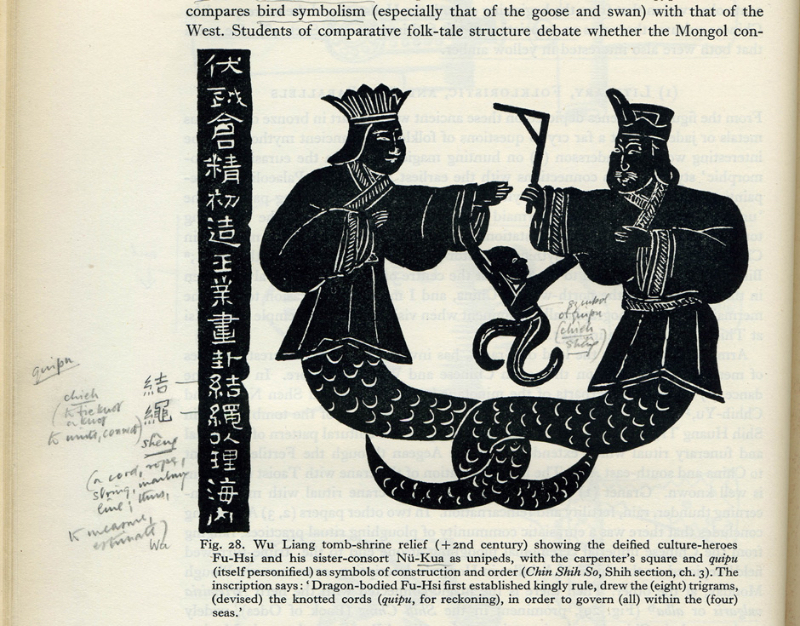 compares bird symbolism (especially that of the goose and swan) with that of the
West. Students of comparative folk-tale structure debate whether the Mongol con-
伏戲倉精初造王業畫卦結繩以理海内
symbol
of quipu
(chieh
shêng)
quipu
結
chieh
(to tie knot
a knot
to unite, connect)
繩
shêng
(a cord, rope,
string, marking
line; thus,
to measure,
estimate)
Fig. 28. Wu Liang tomb-shrine relief (+2nd century) showing the deified culture-heroes
Fu-Hsi and his sister-consort Nü-Kua as unipeds, with the carpenter's square and quipu
(itself personified) as symbols of construction and order (Chin Shih So, Shih section, ch. 3). The
inscription says: 'Dragon-bodied Fu-Hsi first established kingly rule, drew the (eight) trigrams,
(devised) the knotted cords (quipu, for reckoning), in order to govern (all) within the (four)
seas.'